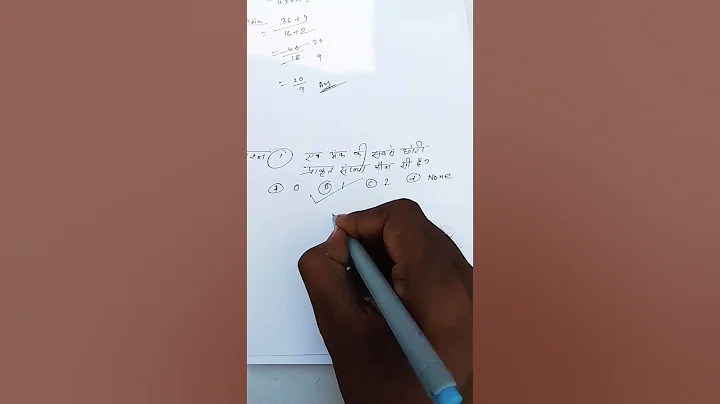 36+4
= ———
16+2
= 40 20
———
18 9
= 20
——
9 Ans
1 एक अंक की सबसे छोटी
प्राकृत संख्या कौन सी है?
A 0 B 1 C 2 d None